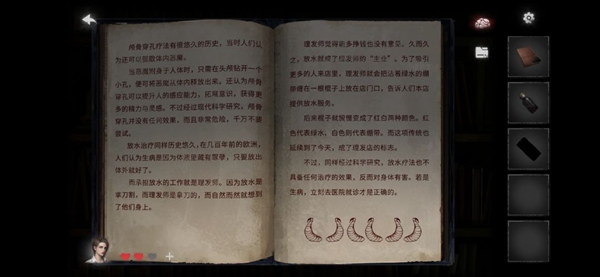 颅骨穿孔疗法有很悠久的历史，当时人们认
为还可以驱散体内恶魔。
当恶魔附身于人体时，只需在头颅钻开一个
小孔，便可将恶魔从体内释放出来。还认为颅骨
穿孔可以提升人的感应能力，拓展意识，获得更
多的精力与灵感。不过经过现代科学研究，颅骨
穿孔并没有任何效果，而且非常危险，千万不要
尝试。
放水疗法同样历史悠久，在几百年前的欧洲，
人们认为生病是因为体液里藏有罪孽，只要放出
体外就好了。
而承担放水的工作就是理发师。因为放水要
拿刀割，而理发师是拿刀的，而自然而然就想到
了他们身上。
理发师觉得能多挣钱也没有意见。久而久
之，放水就成了理发师的“主业”。为了吸引
更多的人来店里，理发师就会把沾着绿水的绷
带缠在一根棍子上放在店门口，告诉人们本店
提供放水服务。
后来棍子就慢慢变成了红白两种颜色。红
色代表绿水、白色则代表绷带。而这项传统也
延续到了今天，成了理发店的标志。
不过，同样经过科学研究，放水疗法也不
具备任何治疗的效果，反而对身体有害。若是
生病，立刻去医院就诊才是正确的。